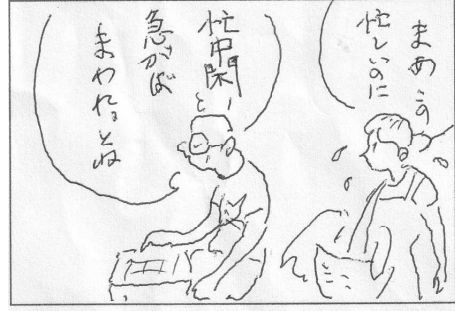 まあこの
忙しいのに
忙中閑ーと
急がば
まわれ。とね